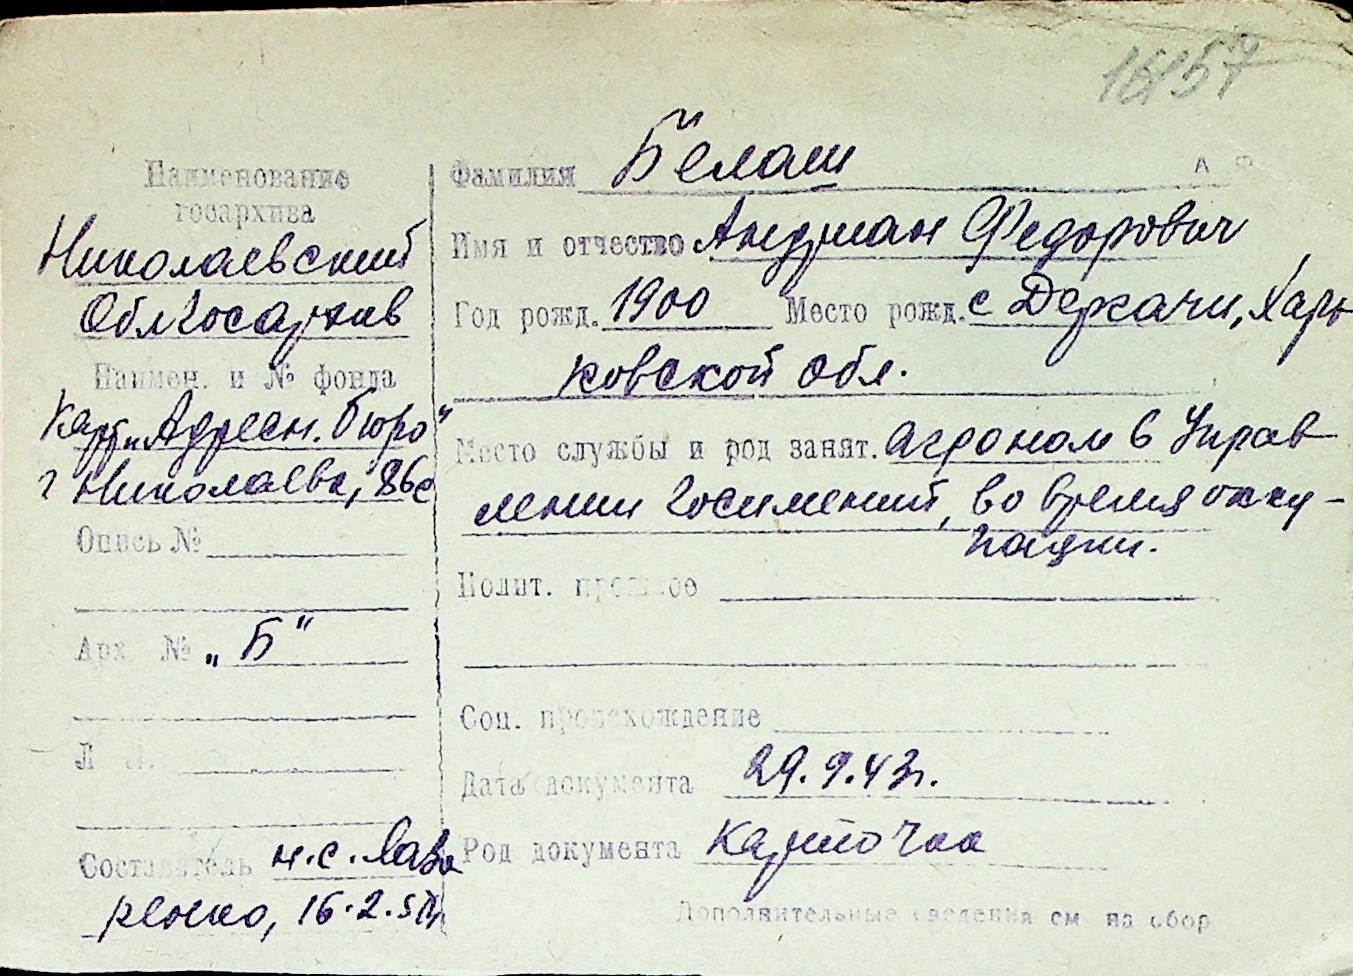 16157
Наименование
госархива
Николаевский
Облгосархив
Наимен. и № фонда
Карт. „Адресн. бюро"
г Николаева, 86с
Опись №
Арх № „Б"
Л Л.
Составитель н.с. Лаза
ренко, 16.2.51г
Фамилия Белаш
А Ф
Имя и отчество Андриан Федорович
Год рожд. 1900 Место рожд. с Дергачи, Харь
ковской обл.
Место службы и род занят. агроном в Управ
лении Госимений, во время окку-
пации.
Полит. прошлое
Соц. происхождение
Дата документа 29.9.43г.
Род документа Карточка
Дополнительные сведения см на обор